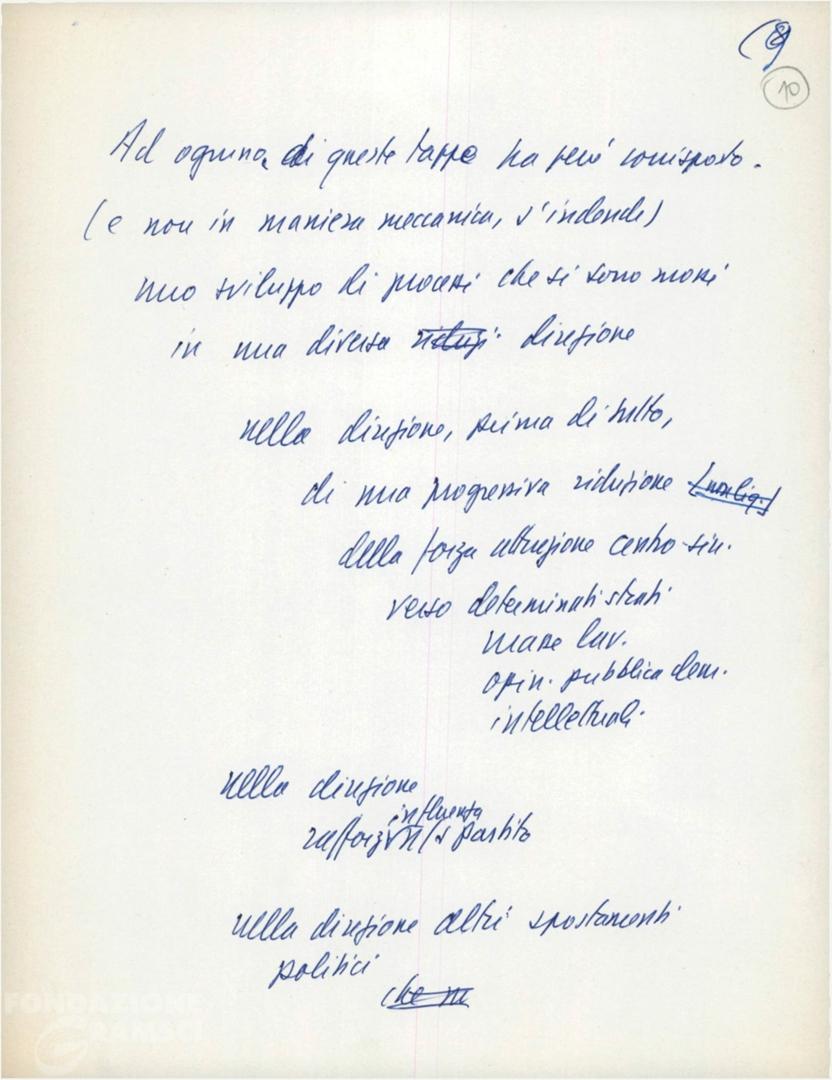 (8)
10
Ad ognuna di queste tappe ha però corrisposto.
(e non in maniera meccanica, s'indende)
uno sviluppo di processi che si sono mossi
in una diversa riduzi direzione
nella direzione, prima di tutto,
di una progressiva riduzione
della forza attrazione centro-sin.
verso determinati strati
masse lav.
opin. pubblica dem.
intellettuali
nella direzione
influenza
rafforz n/s partito
nella direzione altri spostamenti
politici
che ne
FONDAZIONE
GRAMSCI